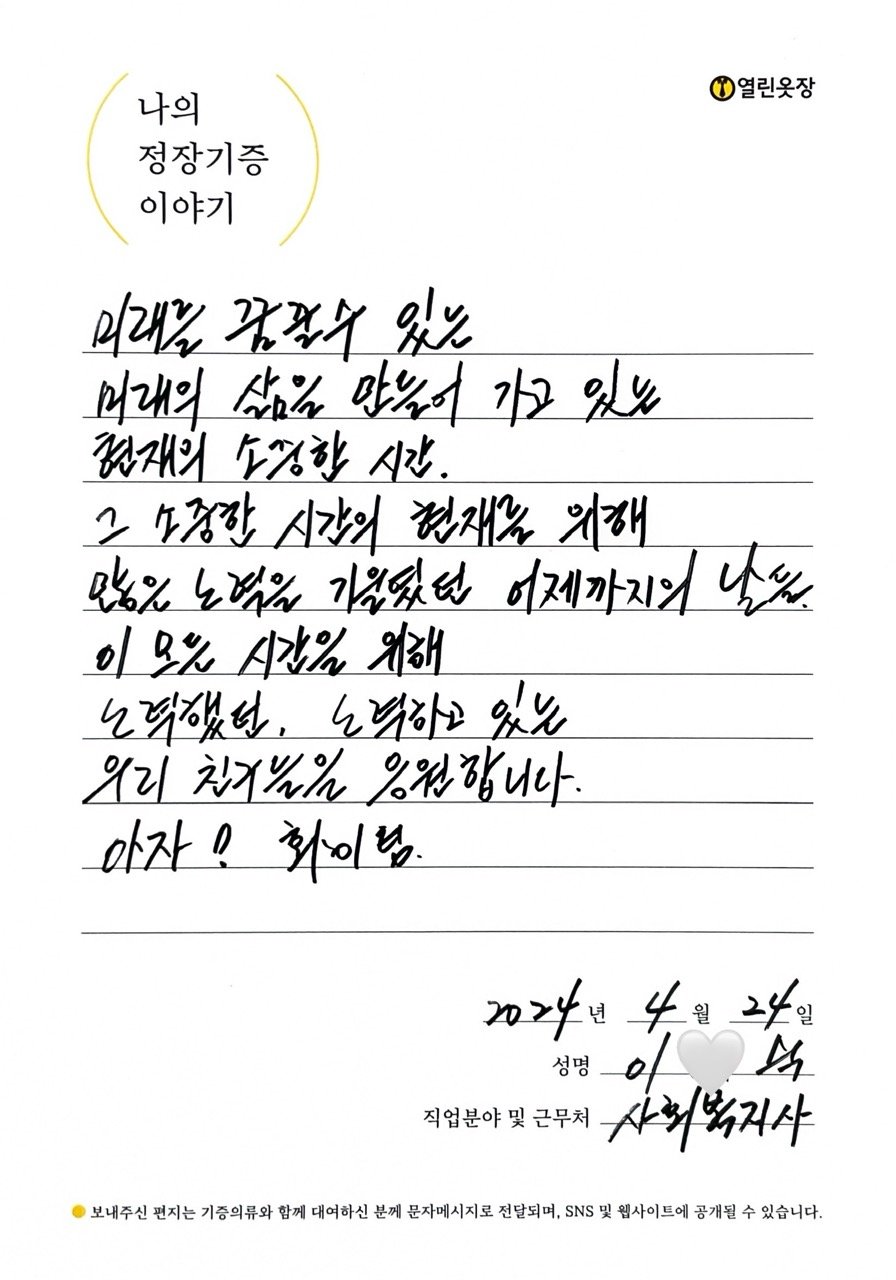 열린옷장
나의
정장기증
이야기
미래를 꿈꿀수 있는
미래의 삶을 만들어 가고 있는
현재의 소중한 시간.
그 소중한 시간의 현재를 위해
많은 노력을 기울였던 어제까지의 날들.
이 모든 시간을 위해
노력했던, 노력하고 있는
우리 친구들을 응원합니다.
아자! 화이팅.
2024년 4월 24일
성명 이 숙
직업분야 및 근무처 사회복지사
보내주신 편지는 기증의류와 함께 대여하신 분께 문자메시지로 전달되며, SNS 및 웹사이트에 공개될 수 있습니다.